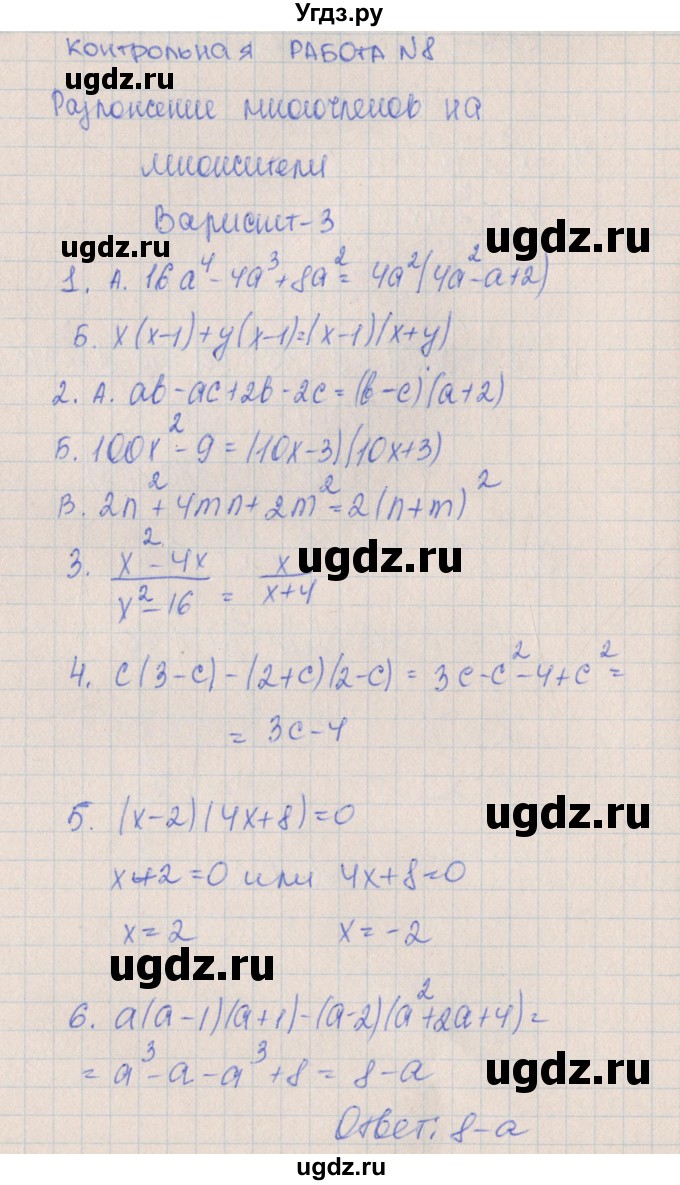 Угдз.ру
Контрольная РАБОТА №8
ugdz.ru
Разложение многочленов на
множители
Вариант-3
ugdz.ru
ugdz.ru
1. А. 16a⁴-4a³+8a²= 4a²(4a²-a+2)
Б. x(x-1)+y(x-1)=(x-1)(x+y)
2. А. ab-ac+2b-2c=(b-c)(a+2)
ugdz.ru
Б. 100x²-9=(10x-3)(10x+3)
В. 2n²+4mn+2m²=2(n+m)²
3. (x²-4x)/(x²-16) = x/(x+4)
ugdz.ru
4. c(3-c)-(2+c)(2-c) = 3c-c²-4+c²=
= 3c-4
5. (x-2)(4x+8)=0
ugdz.ru
x+2=0 или 4x+8=0
x=2 x=-2
ugdz.ru
6. a(a-1)(a+1)-(a-2)(a²+2a+4)=
= a³-a-a³+8= 8-a
ugdz.ru
Ответ: 8-a
ugdz.ru